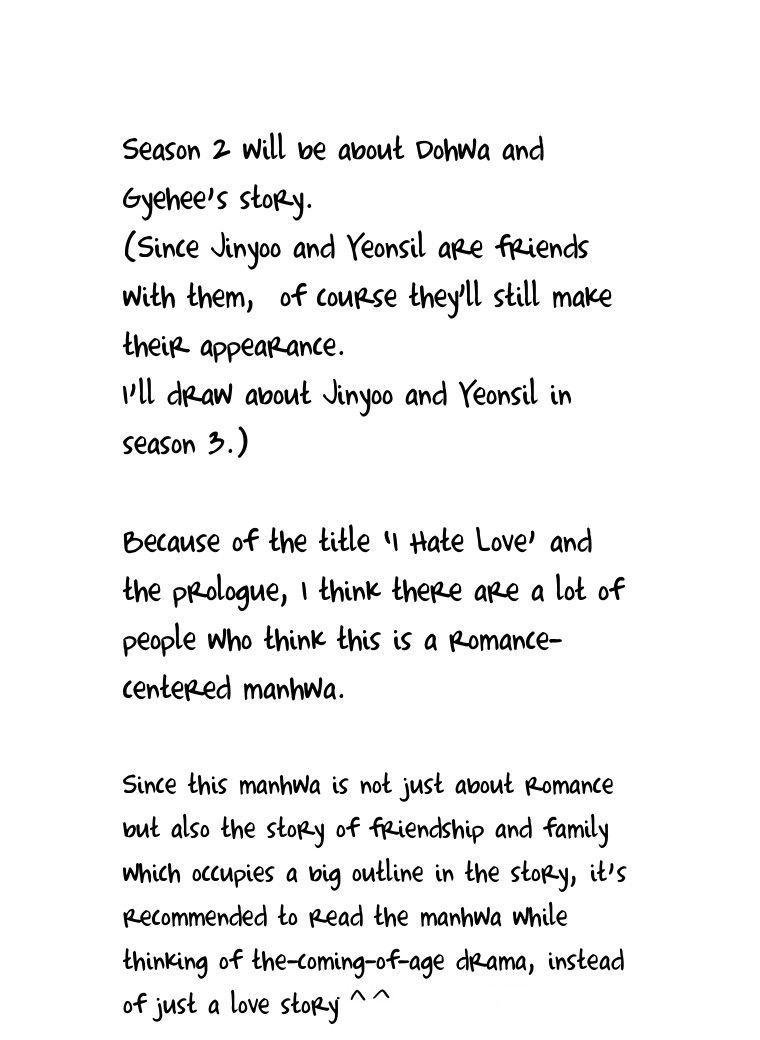 Season 2 will be about Dohwa and
Gyehee's story.
(Since Jinyoo and Yeonsil are friends
with them, of course they'll still make
their appearance.
I'll draw about Jinyoo and Yeonsil in
season 3.)
Because of the title 'I Hate Love' and
the prologue, I think there are a lot of
people who think this is a romance-
centered manhwa.
Since this manhwa is not just about romance
but also the story of friendship and family
which occupies a big outline in the story, it's
recommended to read the manhwa while
thinking of the-coming-of-age drama, instead
of just a love story ^^